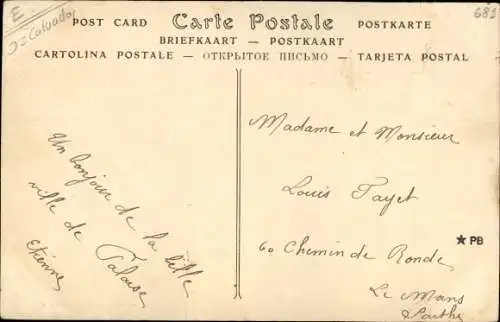 E
J = Calvados
681
POST CARD Carte Postale POSTKARTE
BRIEFKAART — POSTKAART
CARTOLINA POSTALE — ОТКРЫТОЕ ПИСЬМО — TARJETA POSTAL
Un bonjour de la belle
ville de Falaise
Etienne
Madame et Monsieur
Louis Tayet
60 Chemin de Ronde
Le Mans
Sarthe
★ PB